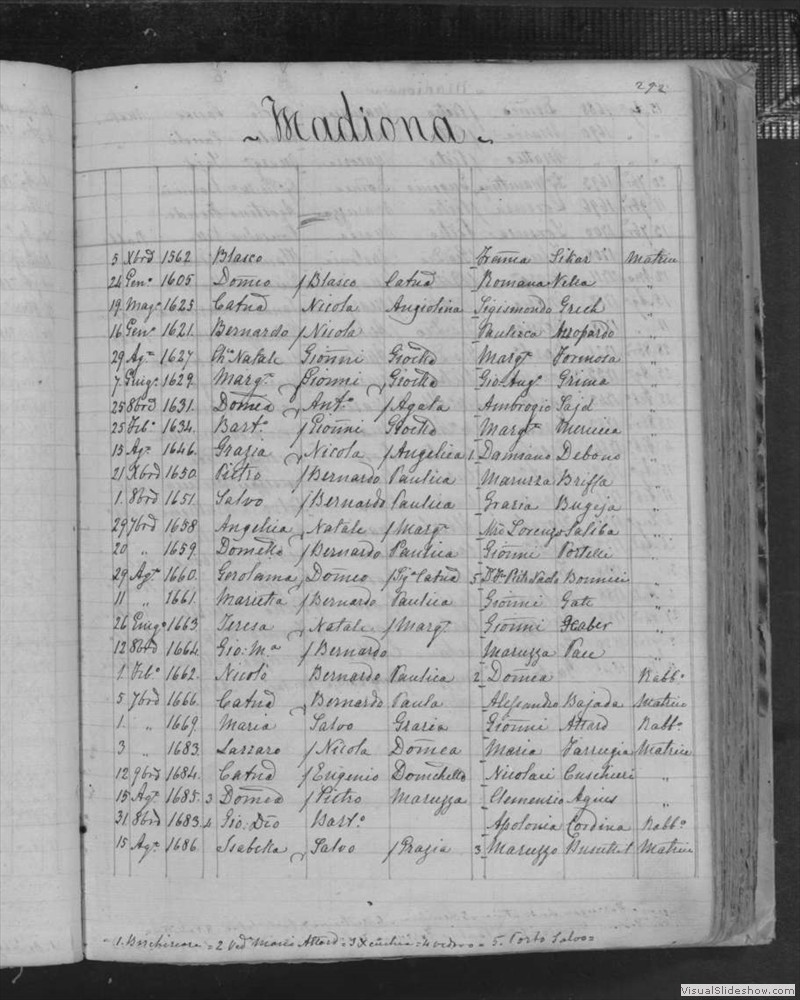 292
Madiona
5 Xbrē 1562 Blasco Sikar Matrice
24 Genº 1605 Domco Blasco Catnā Romana Vella "
19 Magº 1625 Catnā Nicola Angiolina Sigismondo Grech "
16 Genº 1621 Bernardo Nicola Paulica "
29 Agº 1627 Natale Gionni Margᵃ Formosa "
7 Giugº 1629 Margᵃ Gionni Gio: Angº Grima "
25 8brē 1631 Domca Antº Agata Ambrogio Sajd "
25 Febº 1634 Bartº Gionni Margᵃ "
15 Agº 1646 Grazia Nicola Angelica 1 Damiano Debono "
21 Xbrē 1650 Pietro Bernardo Paulica Maruzza Briffa "
1 8brē 1651 Salvo Bernardo Paulica Grazia Bugeja "
29 7brē 1658 Angelica Natale Margᵃ Lorenzo Saliba "
20 " 1659 Bernardo Paulica Gionni Portelli "
29 Agº 1660 Gerolama Domco Catnā 5 Bonnici "
11 " 1661 Marietta Bernardo Paulica Gionni "
26 Giugº 1663 Teresa Natale Margᵃ Gionni Xaber "
12 8brē 1664 Gio: Mᵃ Bernardo Maruzza Pace "
1 Febº 1662 Nicolò Bernardo Paulica 2 Domca Rabbº
5 7brē 1666 Catnā Bernardo Paula Alessandro Bajada Matrice
1 " 1669 Maria Salvo Grazia Gionni Attard Rabbº
3 " 1683 Lazzaro Nicola Domca Maria Farrugia Matrice
12 9brē 1684 Catnā Eugenio Nicolaci Cuschieri "
15 Agº 1685 3 Domca Pietro Maruzza Clemensio Agius "
31 8brē 1683 4 Gio: Bartº Apolonia Cordina Rabbº
15 Agº 1686 Isabella Salvo Grazia 3 Maruzzo Busuttil Matrice
1. Birchircara = 2 Attard = 5. Porto Salvo =
VisualSlideshow.com